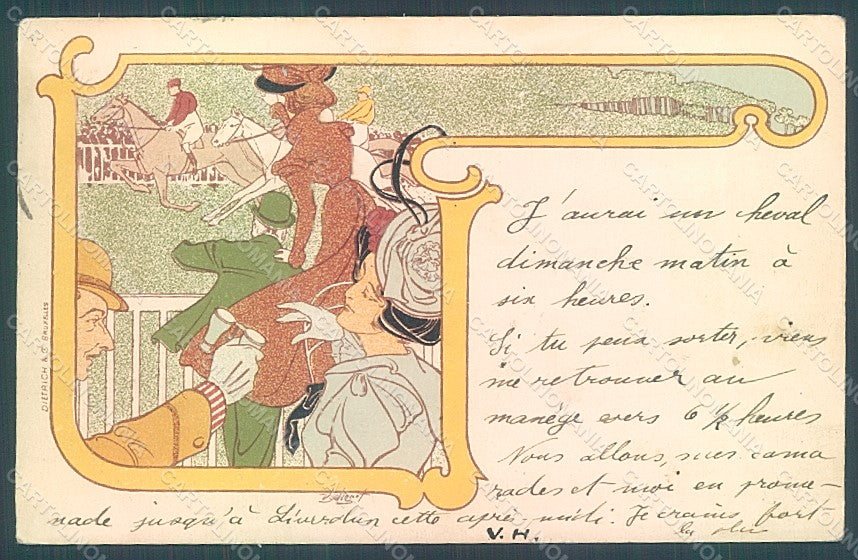 J'aurai un cheval
dimanche matin à
six heures.
Si tu peux sortir, viens
me retrouver au
manège vers 6 ½ heures
Nous allons, mes cama
rades et moi en prome-
nade jusqu'à Liverdun cette après-midi. Je crains fort
la pluie
V.H.
DIETRICH & Cº BRUXELLES
CARTOLINOMANIA